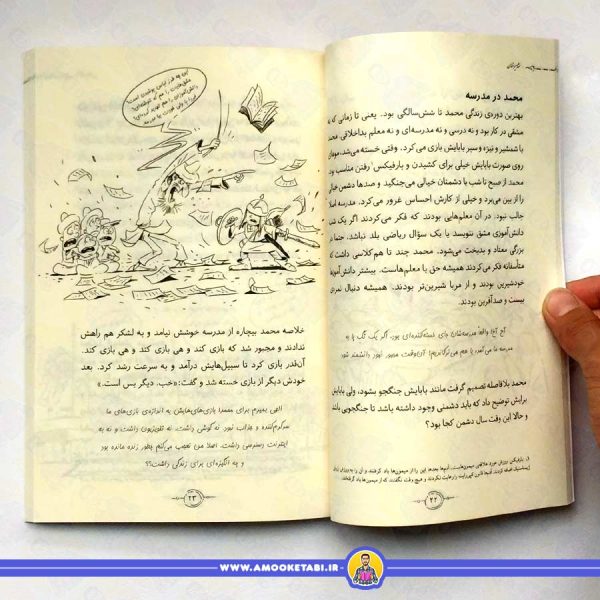 محمد در مدرسه
بهترین دوره‌ی زندگی محمد تا شش‌سالگی بود. یعنی تا زمانی که
مشقی در کار بود و نه درسی و نه مدرسه‌ای و نه معلم بداخلاقی. محمد
با شمشیر و نیزه و سپر بابایش بازی می کرد. وقتی خسته می‌شد،
روی صورت بابایش خیلی برای کشیدن و بارفیکس رفتن مناسب بود.
محمد از صبح تا شب با دشمنان خیالی می‌جنگید و صدها دشمن خیالی
را از بین می‌برد و خیلی از کارش احساس غرور می کرد. مدرسه اما
جالب نبود. در آن معلم‌هایی بودند که فکر می‌کردند اگر یک شب
دانش‌آموزی مشق ننویسد یا یک سؤال ریاضی بلد نباشد، حتما در
بزرگی معتاد و بدبخت می‌شود. محمد چند تا هم‌کلاسی داشت که
متأسفانه فکر می‌کردند همیشه حق با معلم‌هاست. بیشتر دانش‌آموزها
خودشیرین بودند و از مربا شیرین‌تر بودند. همیشه دنبال نمره‌ی
بیست و صدآفرین بودند.
آخ آخ! واقعاً مدرسه‌شان جای خسته‌کننده‌ای بود. اگر یک گپ پا به
مدرسه ما می‌آمد،
محمد بلافاصله تصمیم گرفت مانند بابایش جنگجو بشود، ولی بابایش
برایش توضیح داد که باید دشمنی وجود داشته باشد تا جنگجویی باشد
و حالا این وقت سال دشمن کجا بود؟
۲۲
خلاصه محمد بیچاره از مدرسه خوشش نیامد و به لشکر هم راهش
ندادند و مجبور شد که بازی کند و هی بازی کند و هی بازی کند.
آن‌قدر بازی کرد تا سبیل‌هایش درآمد و به سرعت رشد کرد. بعد
خودش دیگر از بازی خسته شد و گفت: «خب، دیگر بس است.»
الهی بمیرم برای محمد! بازی‌های‌هایش به اندازه‌ی بازی‌های ما
سرگرم‌کننده و جذاب نبود. نه گوشی داشت، نه تلویزیون داشت، و نه به
اینترنت دسترسی داشت. اصلا من تعجب می‌کنم چطور زنده مانده بود
و به انگیزه‌ای برای زندگی داشت؟؟
۲۳
WWW.AMOOKETABI.IR